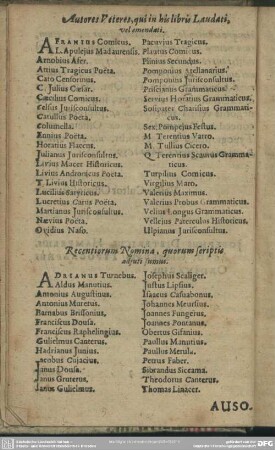 Autores Veteres, qui in his libris Laudati,
vel emendati.
AFRANIUS Comicus.
L. Apulejus Madaurensis.
Arnobius Afer.
Attius Tragicus Poëta.
Cato Censorinus.
C. Julius Cæsar.
Cæcilius Comicus.
Celsus Jurisconsultus.
Catullus Poëta.
Columella.
Ennius Poëta.
Horatius Flaccus.
Julianus Jurisconsultus.
Livius Macer Historicus.
Livius Andronicus Poëta.
T. Livius Historicus.
Lucilius Satyricus.
Lucretius Carus Poëta.
Martianus Jurisconsultus.
Nævius Poëta.
Ovidius Naso.
Pacuvius Tragicus.
Plautus Comicus.
Plinius Secundus.
Pomponius Atellanarius.
Pomponius Jurisconsultus.
Priscianus Grammaticus.
Servius Honoratus Grammaticus.
Sosipater Charisius Grammati-
cus.
Sex. Pompejus Festus.
M. Terentius Varro.
M. Tullius Cicero.
Q. Terentius Scaurus Gramma-
ticus.
Turpilius Comicus.
Virgilius Maro.
Valerius Maximus.
Valerius Probus Grammaticus.
Velius Longus Grammaticus.
Vellejus Paterculus Historicus.
Ulpianus Jurisconsultus.
Recentiorum Nomina, quorum scriptis
adjuti sumus.
ADRIANUS Turnebus.
Aldus Manutius.
Antonius Augustinus.
Antonius Muretus.
Barnabas Brissonius.
Franciscus Dousa.
Franciscus Raphelengius.
Gulielmus Canterus.
Hadrianus Junius.
Jacobus Cujacius.
Janus Dousa.
Janus Gruterus.
Janus Gulielmus.
Josephus Scaliger.
Justus Lipsius.
Isaacus Casaubonus.
Johannes Meursius.
Joannes Fungerus.
Joannes Pontanus.
Obertus Gifanius.
Paullus Manutius.
Paullus Merula.
Petrus Faber.
Sibrandus Siccama.
Theodorus Canterus.
Thomas Linacer.
AUSO.